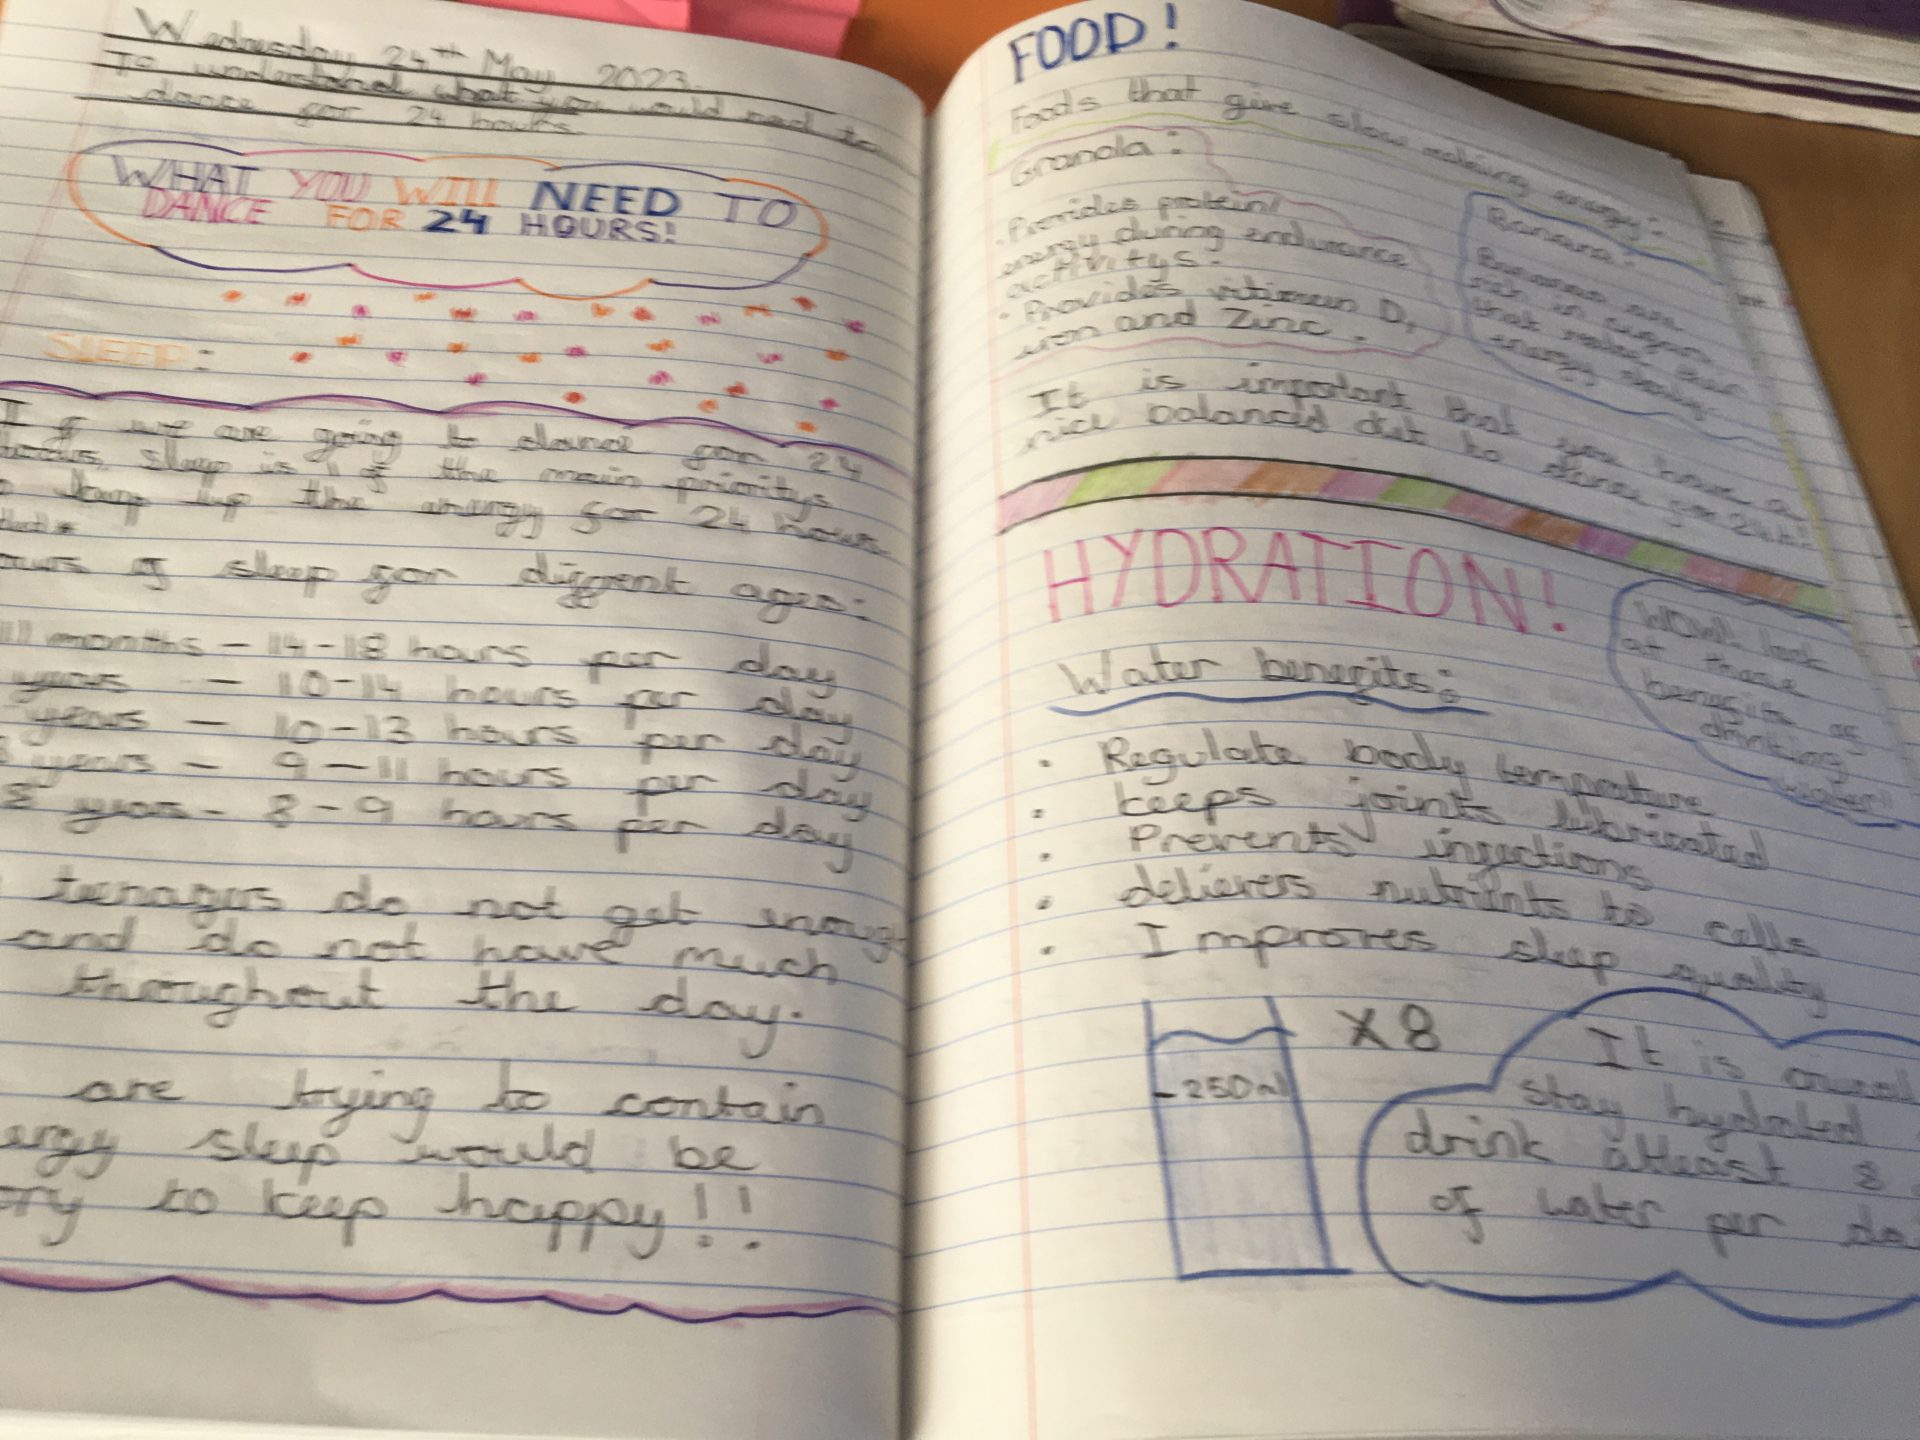 Wednesday 24th May 2023.
To understand what you would need to
dance for 24 hours.
WHAT YOU WILL NEED TO
DANCE FOR 24 HOURS!
SLEEP:
If we are going to dance for 24
hours, sleep is 1 of the main prioritys
keep up the energy for 24 hours
of sleep for diffrent ages:
11 months - 14-18 hours per day
years - 10-14 hours per day
years - 10-13 hours per day
years - 9-11 hours per day
years - 8-9 hours per day
do not get
and do not have much
throughout the day.
are trying to contain
sleep would be
to keep happy!!
FOOD!
Foods that give slow energy:
Granola:
• Provides protein/
energy during endurance
activitys.
• Provides D,
iron and Zinc.
Banana:
Bananas are
rich in
that
energy slowly.
It is important that you have a
nice balanced diet to dance for 24h!
HYDRATION!
Water benefits:
Wow! look
at these
benefits of
drinking
water!
• Regulate body
• keeps joints lubricated
• Prevents infections
• delievers nutrients to cells
• Improves sleep quality
- 250ml
x8
It is
stay hydrated
drink atleast 8
of water per